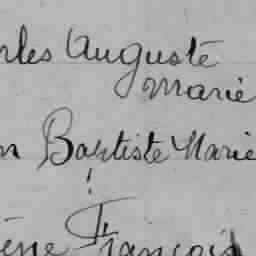 rles Auguste
Marie
n Baptiste Marie
ène François